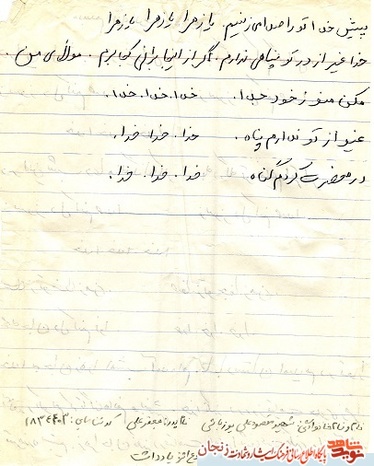 پیش خدا تو را صدا می زنیم. یا زهرا یا زهرا یا زهرا
خدا غیر از در تو پناهی ندارم. اگر از اینجا برانی کجا برم. مولای من.
مکن منو ز خود جدا. خدا. خدا. خدا.
غیر از تو ندارم پناه. خدا. خدا. خدا.
در محضرت کردم گناه خدا. خدا. خدا.
نام و نام خانوادگی: شهید منصور علی نام پدر: صفرعلی کد شناسایی:
نوید شاهد پایگاه اطلاع رسانی فرهنگ ایثار و شهادت زنجان